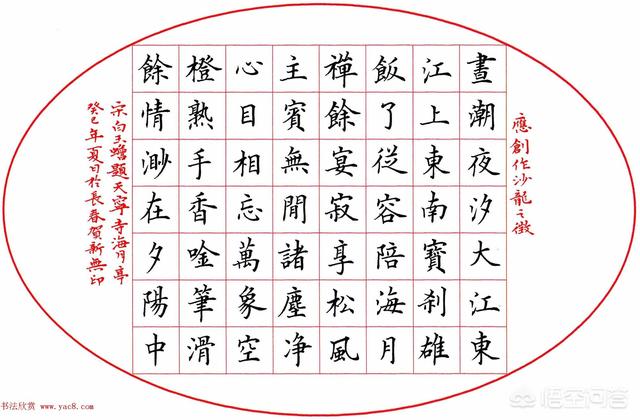 應創作沙龍之徵
晝潮夜汐大江東
江上東南寶刹雄
飯了從容陪海月
禪餘宴寂享松風
主賓無間諸塵净
心目相忘萬象空
橙熟手香唫筆滑
餘情渺在夕陽中
宋白玉蟾題天寧寺海月亭
癸巳年夏日於長春賀新無印
书法欣赏 www.yac8.com
悟空问答